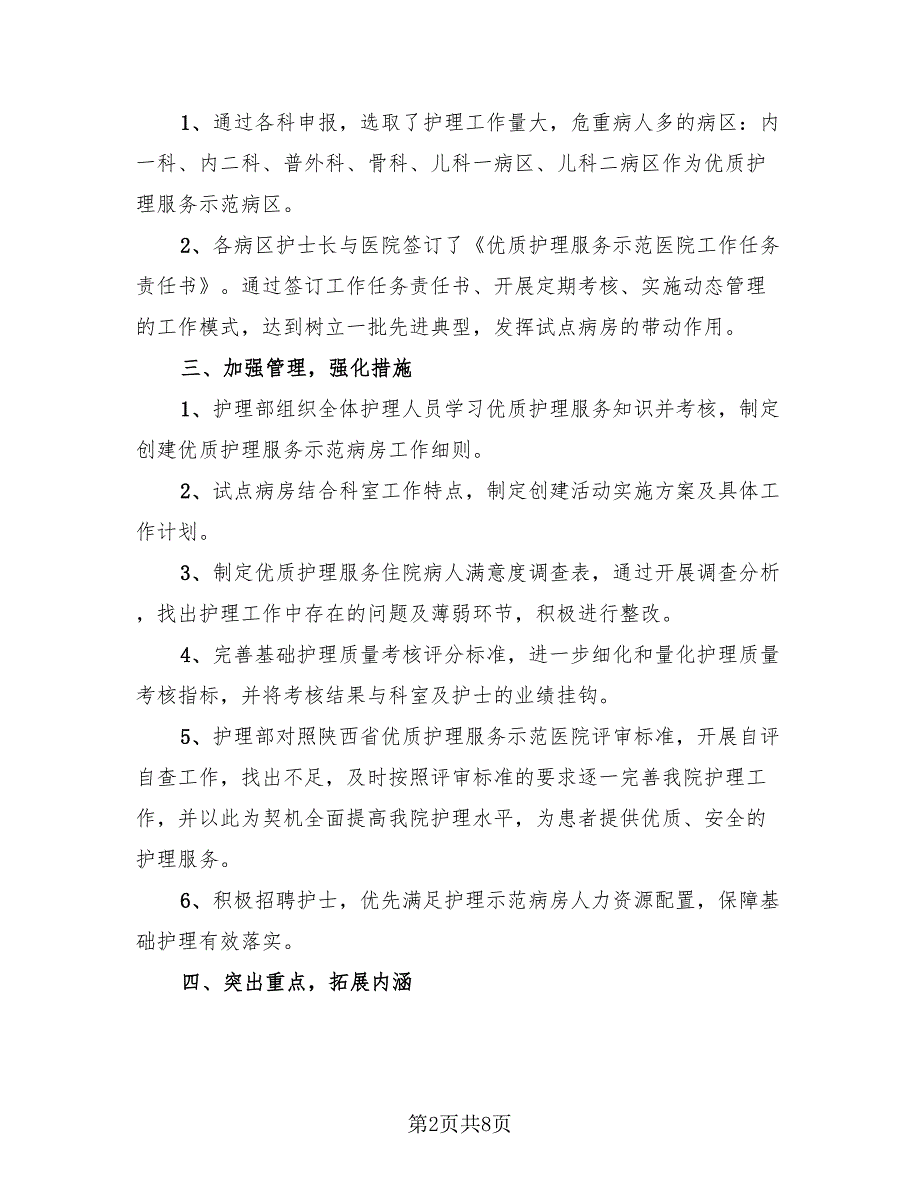 1、通过各科申报，选取了护理工作量大，危重病人多的病区：内
一科、内二科、普外科、骨科、儿科一病区、儿科二病区作为优质护
理服务示范病区。
2、各病区护士长与医院签订了《优质护理服务示范医院工作任务
责任书》。通过签订工作任务责任书、开展定期考核、实施动态管理
的工作模式，达到树立一批先进典型，发挥试点病房的带动作用。
三、加强管理，强化措施
1、护理部组织全体护理人员学习优质护理服务知识并考核，制定
创建优质护理服务示范病房工作细则。
2、试点病房结合科室工作特点，制定创建活动实施方案及具体工
作计划。
3、制定优质护理服务住院病人满意度调查表，通过开展调查分析
，找出护理工作中存在的问题及薄弱环节，积极进行整改。
4、完善基础护理质量考核评分标准，进一步细化和量化护理质量
考核指标，并将考核结果与科室及护士的业绩挂钩。
5、护理部对照陕西省优质护理服务示范医院评审标准，开展自评
自查工作，找出不足，及时按照评审标准的要求逐一完善我院护理工
作，并以此为契机全面提高我院护理水平，为患者提供优质、安全的
护理服务。
6、积极招聘护士，优先满足护理示范病房人力资源配置，保障基
础护理有效落实。
四、突出重点，拓展内涵
第2页共8页